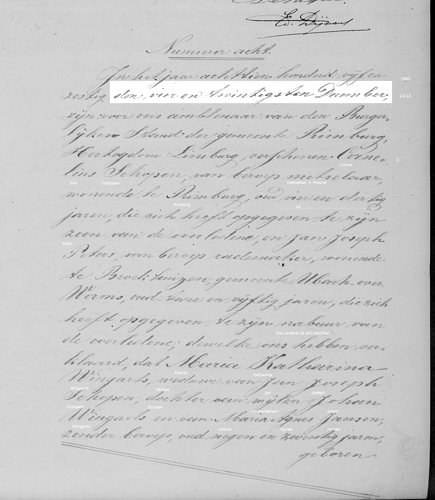 Nummer acht.
In het jaar achttien honderd vijf en
zestig den vier en twintigsten December,
zijn voor ons ambtenaar van den Burger-
lijken Stand der gemeente Rimburg,
Hertogdom Limburg, verschenen Corne-
lius Schopen, van beroep metselaar,
wonende te Rimburg, oud vier en dertig
jaren, die zich heeft opgegeven te zijn
zoon van de overledene, en Jan Joseph
Peters, van beroep rademaker, wonende
te Broekhuizen, gemeente Ubach over
Worms, oud twee en vijftig jaren, die zich
heeft opgegeven te zijn nabuur van
de overledene; dewelke ons hebben ver-
klaard, dat Maria Katharina
Wingarts, weduwe van Jan Joseph
Schopen, dochter van wijlen Johan
Wingarts en van Maria Agnes Jansen,
zonder beroep, oud negen en zeventig jaren,
geboren